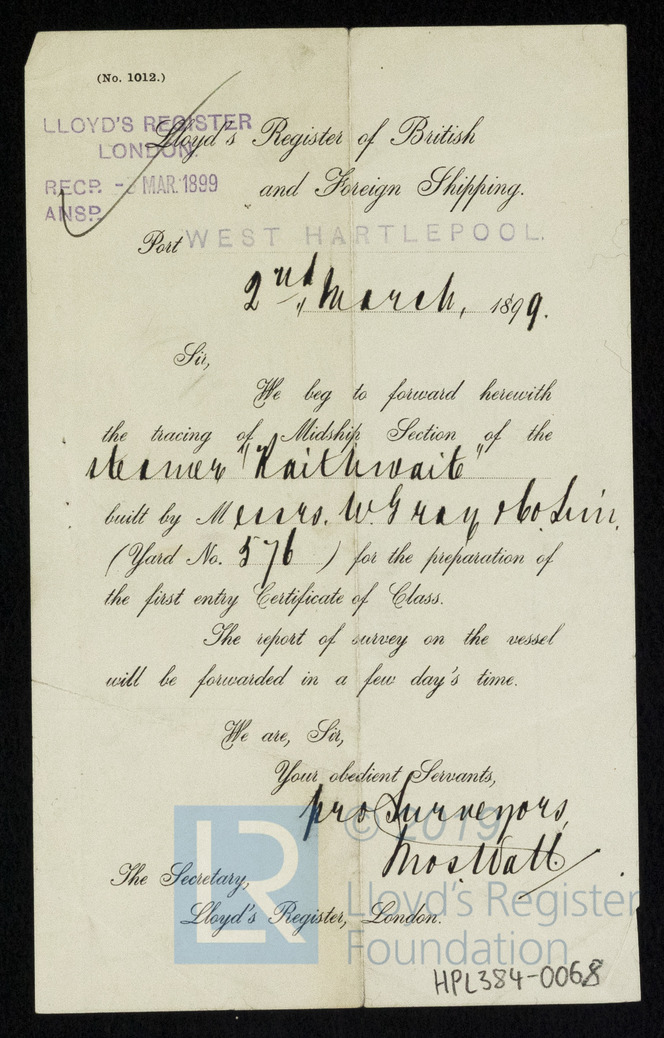 (No. 1012.)
LLOYD'S REGISTER
LONDON.
RECD. - MAR. 1899
ANSD.
Lloyd's Register of British
and Foreign Shipping.
Port WEST HARTLEPOOL.
2nd March, 1899.
Sir,
We beg to forward herewith
the tracing of Midship Section of the
steamer "Raithwaite"
built by Messrs. W. Gray & Co Lim.
(Yard No. 576) for the preparation of
the first entry Certificate of Class.
The report of survey on the vessel
will be forwarded in a few day's time.
We are, Sir,
Your obedient Servants,
pro Surveyors,
Thos Watt
The Secretary,
Lloyd's Register, London.
LR
© 2019
Lloyd's Register
Foundation
HPL384-0068